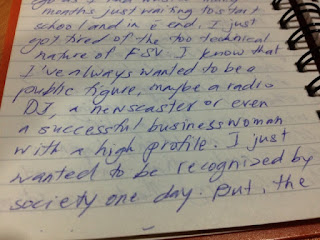 months just waiting to start
school and in ē end. I just
got tired of the too technical
nature of FSV. I know that
I've always wanted to be a
public figure, maybe a radio
DJ, a newscaster or even
a successful businesswoman
with a high profile. I just
wanted to be recognized by
society one day. But, the